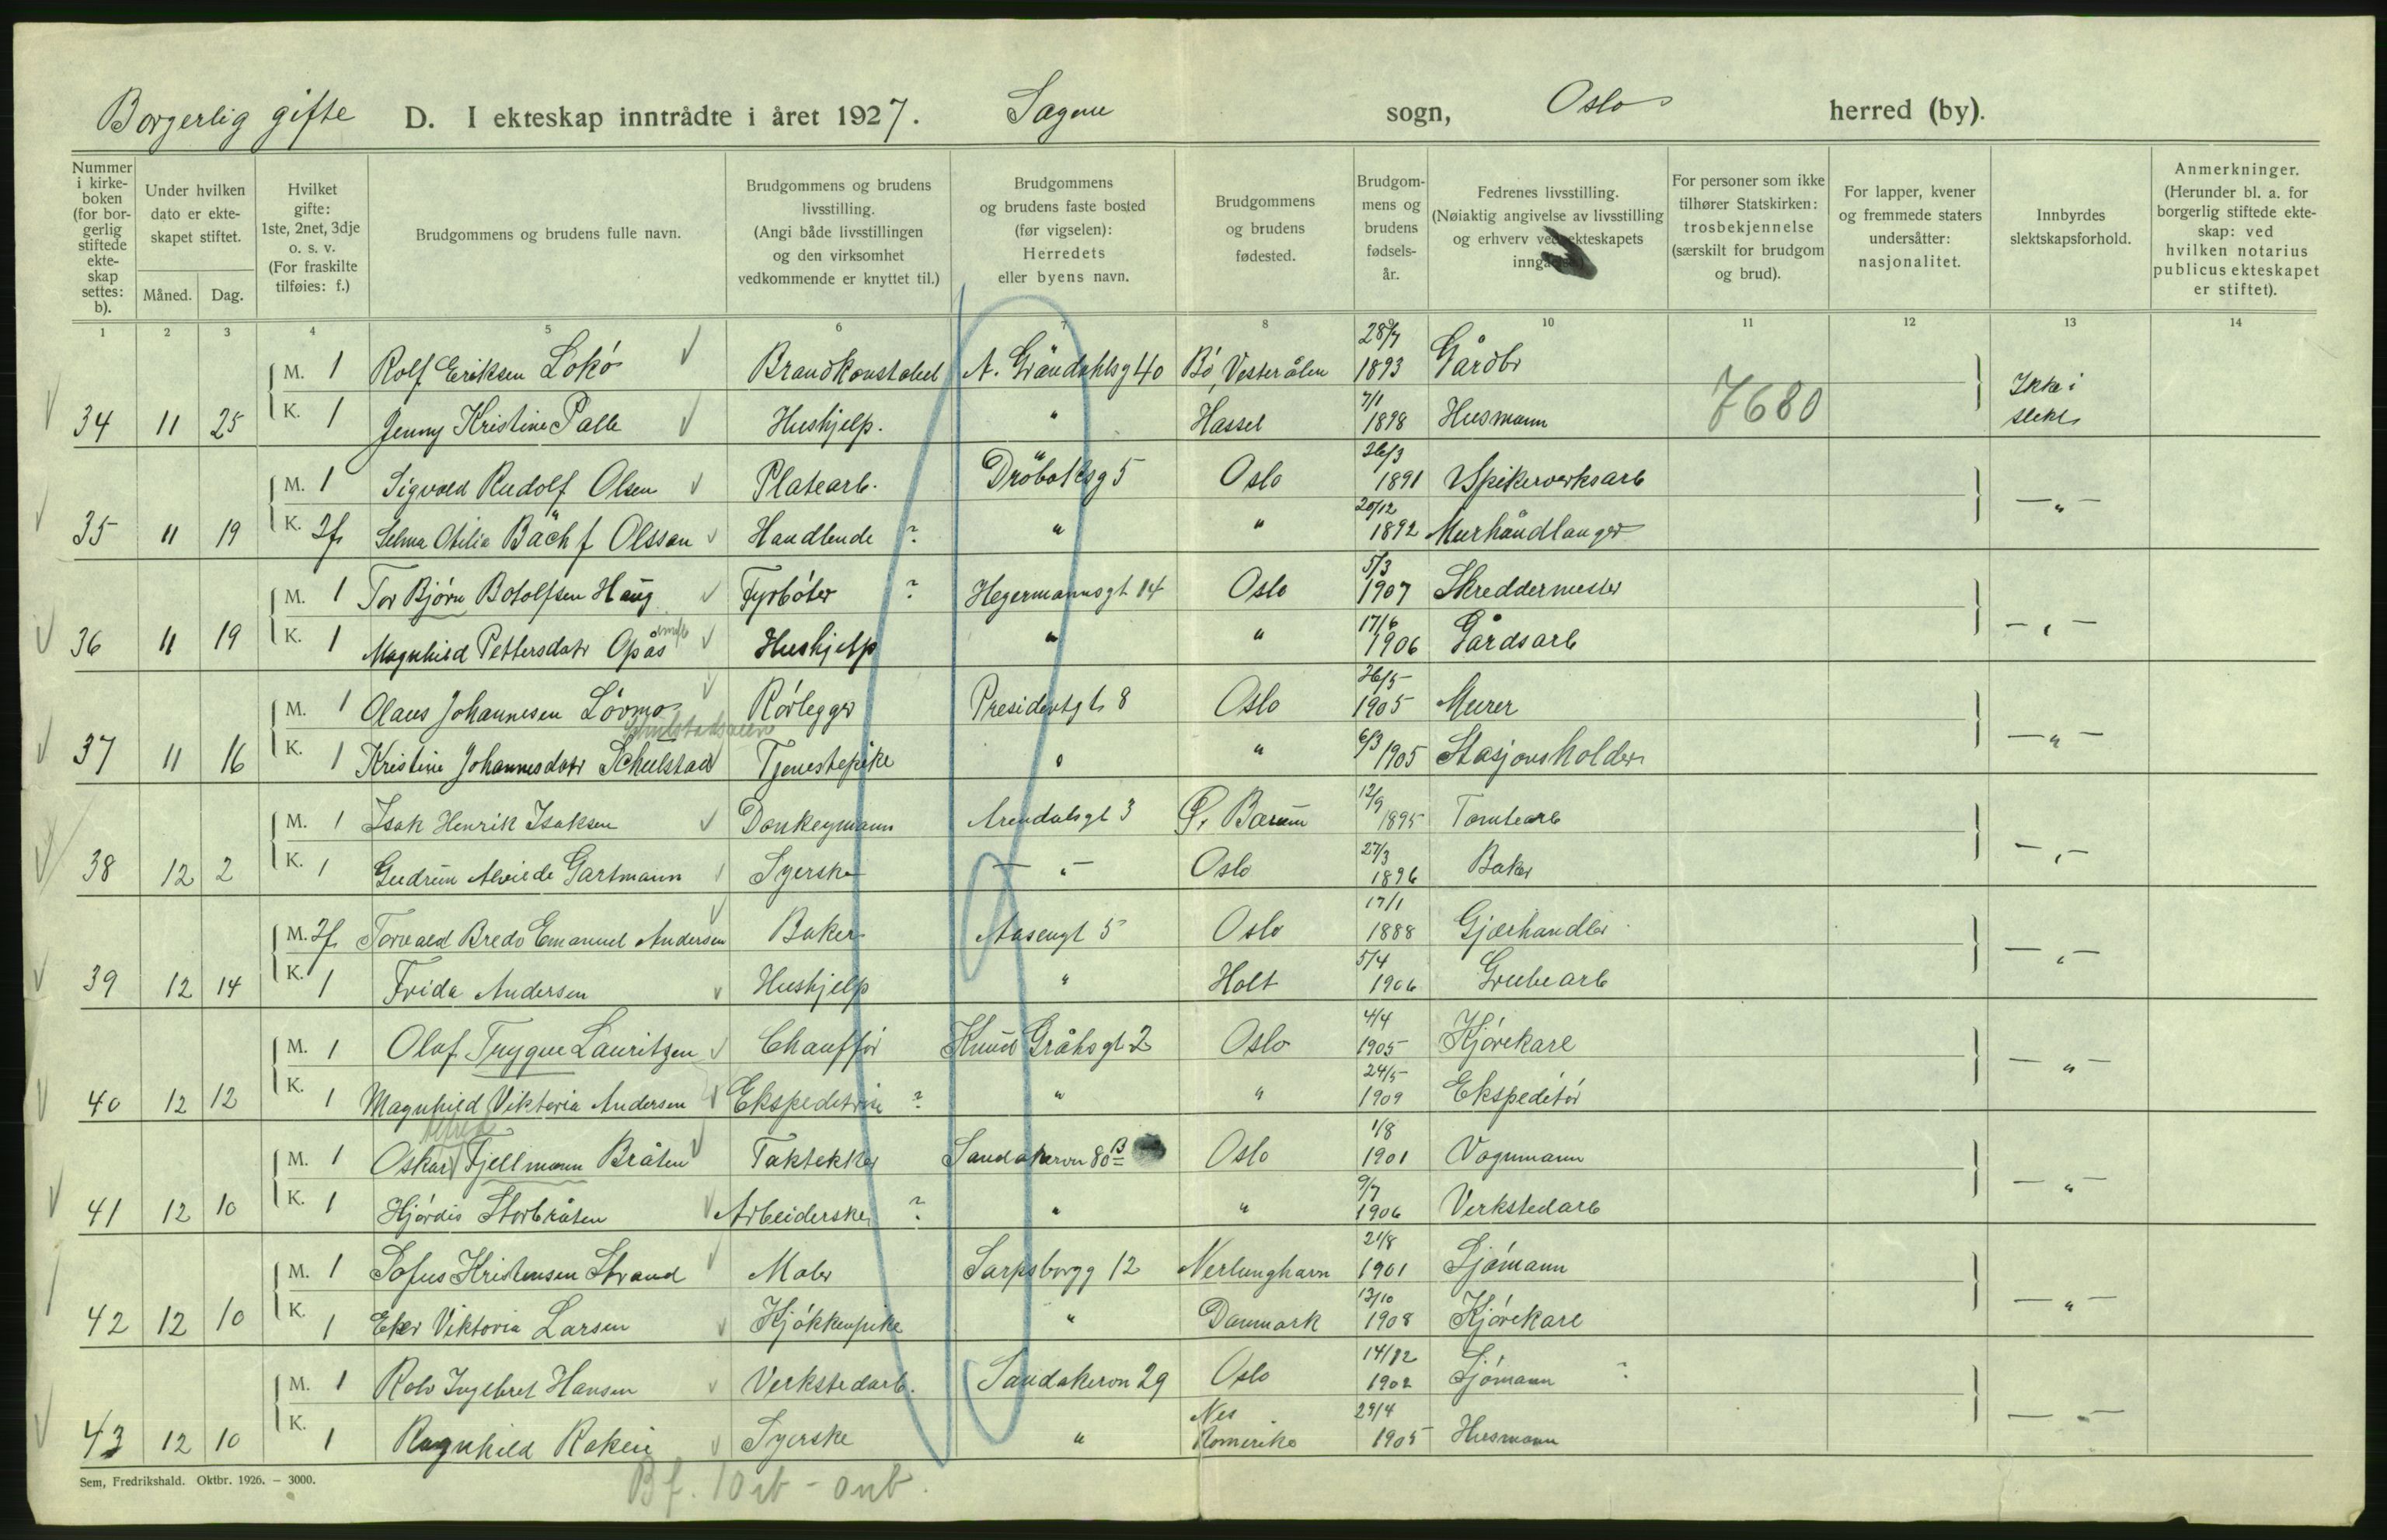 Borgerlig gifte D. I ekteskap inntrådte i året 1927. Sagene sogn, Oslo herred (by).
Nummer i kirke-boken (for bor-gerlig stiftede ekte-skap settes: b).
Under hvilken dato er ekte-skapet stiftet. Måned. Dag.
Hvilket gifte: 1ste, 2net, 3dje o. s. v. (For fraskilte tilføies: f.)
Brudgommens og brudens fulle navn.
Brudgommens og brudens livsstilling. (Angi både livsstillingen og den virksomhet vedkommende er knyttet til.)
Brudgommens og brudens faste bosted (før vigselen): Herredets eller byens navn.
Brudgommens og brudens fødested.
Brudgom-mens og brudens fødsels-år.
Fedrenes livsstilling. (Nøiaktig angivelse av livsstilling og erhverv ved ekteskapets
For personer som ikke tilhører Statskirken: trosbekjennelse (særskilt for brudgom og brud).
For lapper, kvener og fremmede staters undersåtter: nasjonalitet.
Innbyrdes slektskapsforhold.
Anmerkninger. (Herunder bl. a. for borgerlig stiftede ekte-skap: ved hvilken notarius publicus ekteskapet er stiftet).
1 2 3 4 5 6 7 8 10 11 12 13 14
M. 1 Rolf Eriksen Lokö Brandkonstabel A. Gröndahlsg 40 Bö, Vesterålen 28/7 1893 Gårdbr
34 11 25 K. 1 Jenny Kristine Palle Hushjelp. " Hassel 7/1 1898 Husmann 7680 Ikke i slekt
M. 1 Sigvald Rudolf Olsen Platearb. Dröbaksg 5 Oslo 26/3 1891 Spikerverksarb
35 11 19 K. 2f. Selma Otilia Bäch f Olsson Handlende ? " " 20/12 1892 Murhåndlanger — " —
M. 1 Tor Björn Botolfsen Haug Fyrböter ? Hegermannsgt 14 Oslo 5/3 1907 Skreddermester
36 11 19 K. 1 Magnhild Pettersdatr Opås Hushjelp " " 17/6 1906 Gårdsarb — " —
M. 1 Olaus Johannesen Lövmo Rörlegger Presidentgt 8 Oslo 26/5 1905 Murer
37 11 16 K. 1 Kristine Johannesdatr Schulstad Tjenestepike " " 6/3 1905 Stasjonsholder — " —
M. 1 Isak Henrik Isaksen Donkeymann Arendalsgt 3 Bærum 12/9 1895 Tomtearb
38 12 2 K. 1 Gudrun Alvilde Gartmann Syerske — " — Oslo 27/3 1896 Baker — " —
M. 2f. Torvald Bredo Emanuel Andersen Baker Aasengt 5 Oslo 17/1 1888 Gjærhandler
39 12 14 K. 1 Frida Andersen Hushjelp " Holt 5/4 1906 Grubearb — " —
M. 1 Olaf Trygve Lauritzen Chafför Knud Gråhsgt 2 Oslo 4/4 1905 Kjörekarl
40 12 12 K. 1 Magnhild Viktoria Andersen Ekspeditrise ? " " 24/5 1909 Ekspeditör — " —
M. 1 Oskar Fjellmann Bråten Taktekker Sandakervn 80 B Oslo 1/8 1901 Vognmann
41 12 10 K. 1 Hjördis Storbråten Arbeiderske ? " " 9/7 1906 Verkstedarb — " —
M. 1 Sofus Kristensen Strand Maler Sarpsborgg 12 Nerlunghavn 21/8 1901 Sjömann
42 12 10 K. 1 Viktoria Larsen Kjökkenpike " Danmark 13/10 1908 Kjörekarl — " —
M. 1 Rolv Ingebret Hansen Verkstedarb. Sandakervn 29 Oslo 14/12 1902 Sjömann ?
43 12 10 K. 1 Ragnhild Rakeie Syerske " Nes Romerike 29/4 1905 Husmann — " —
Sem, Fredrikshald. Oktbr. 1926. – 3000.